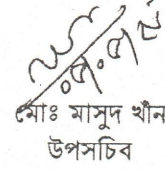 মোঃ মাসুদ খাঁন
উপসচিব